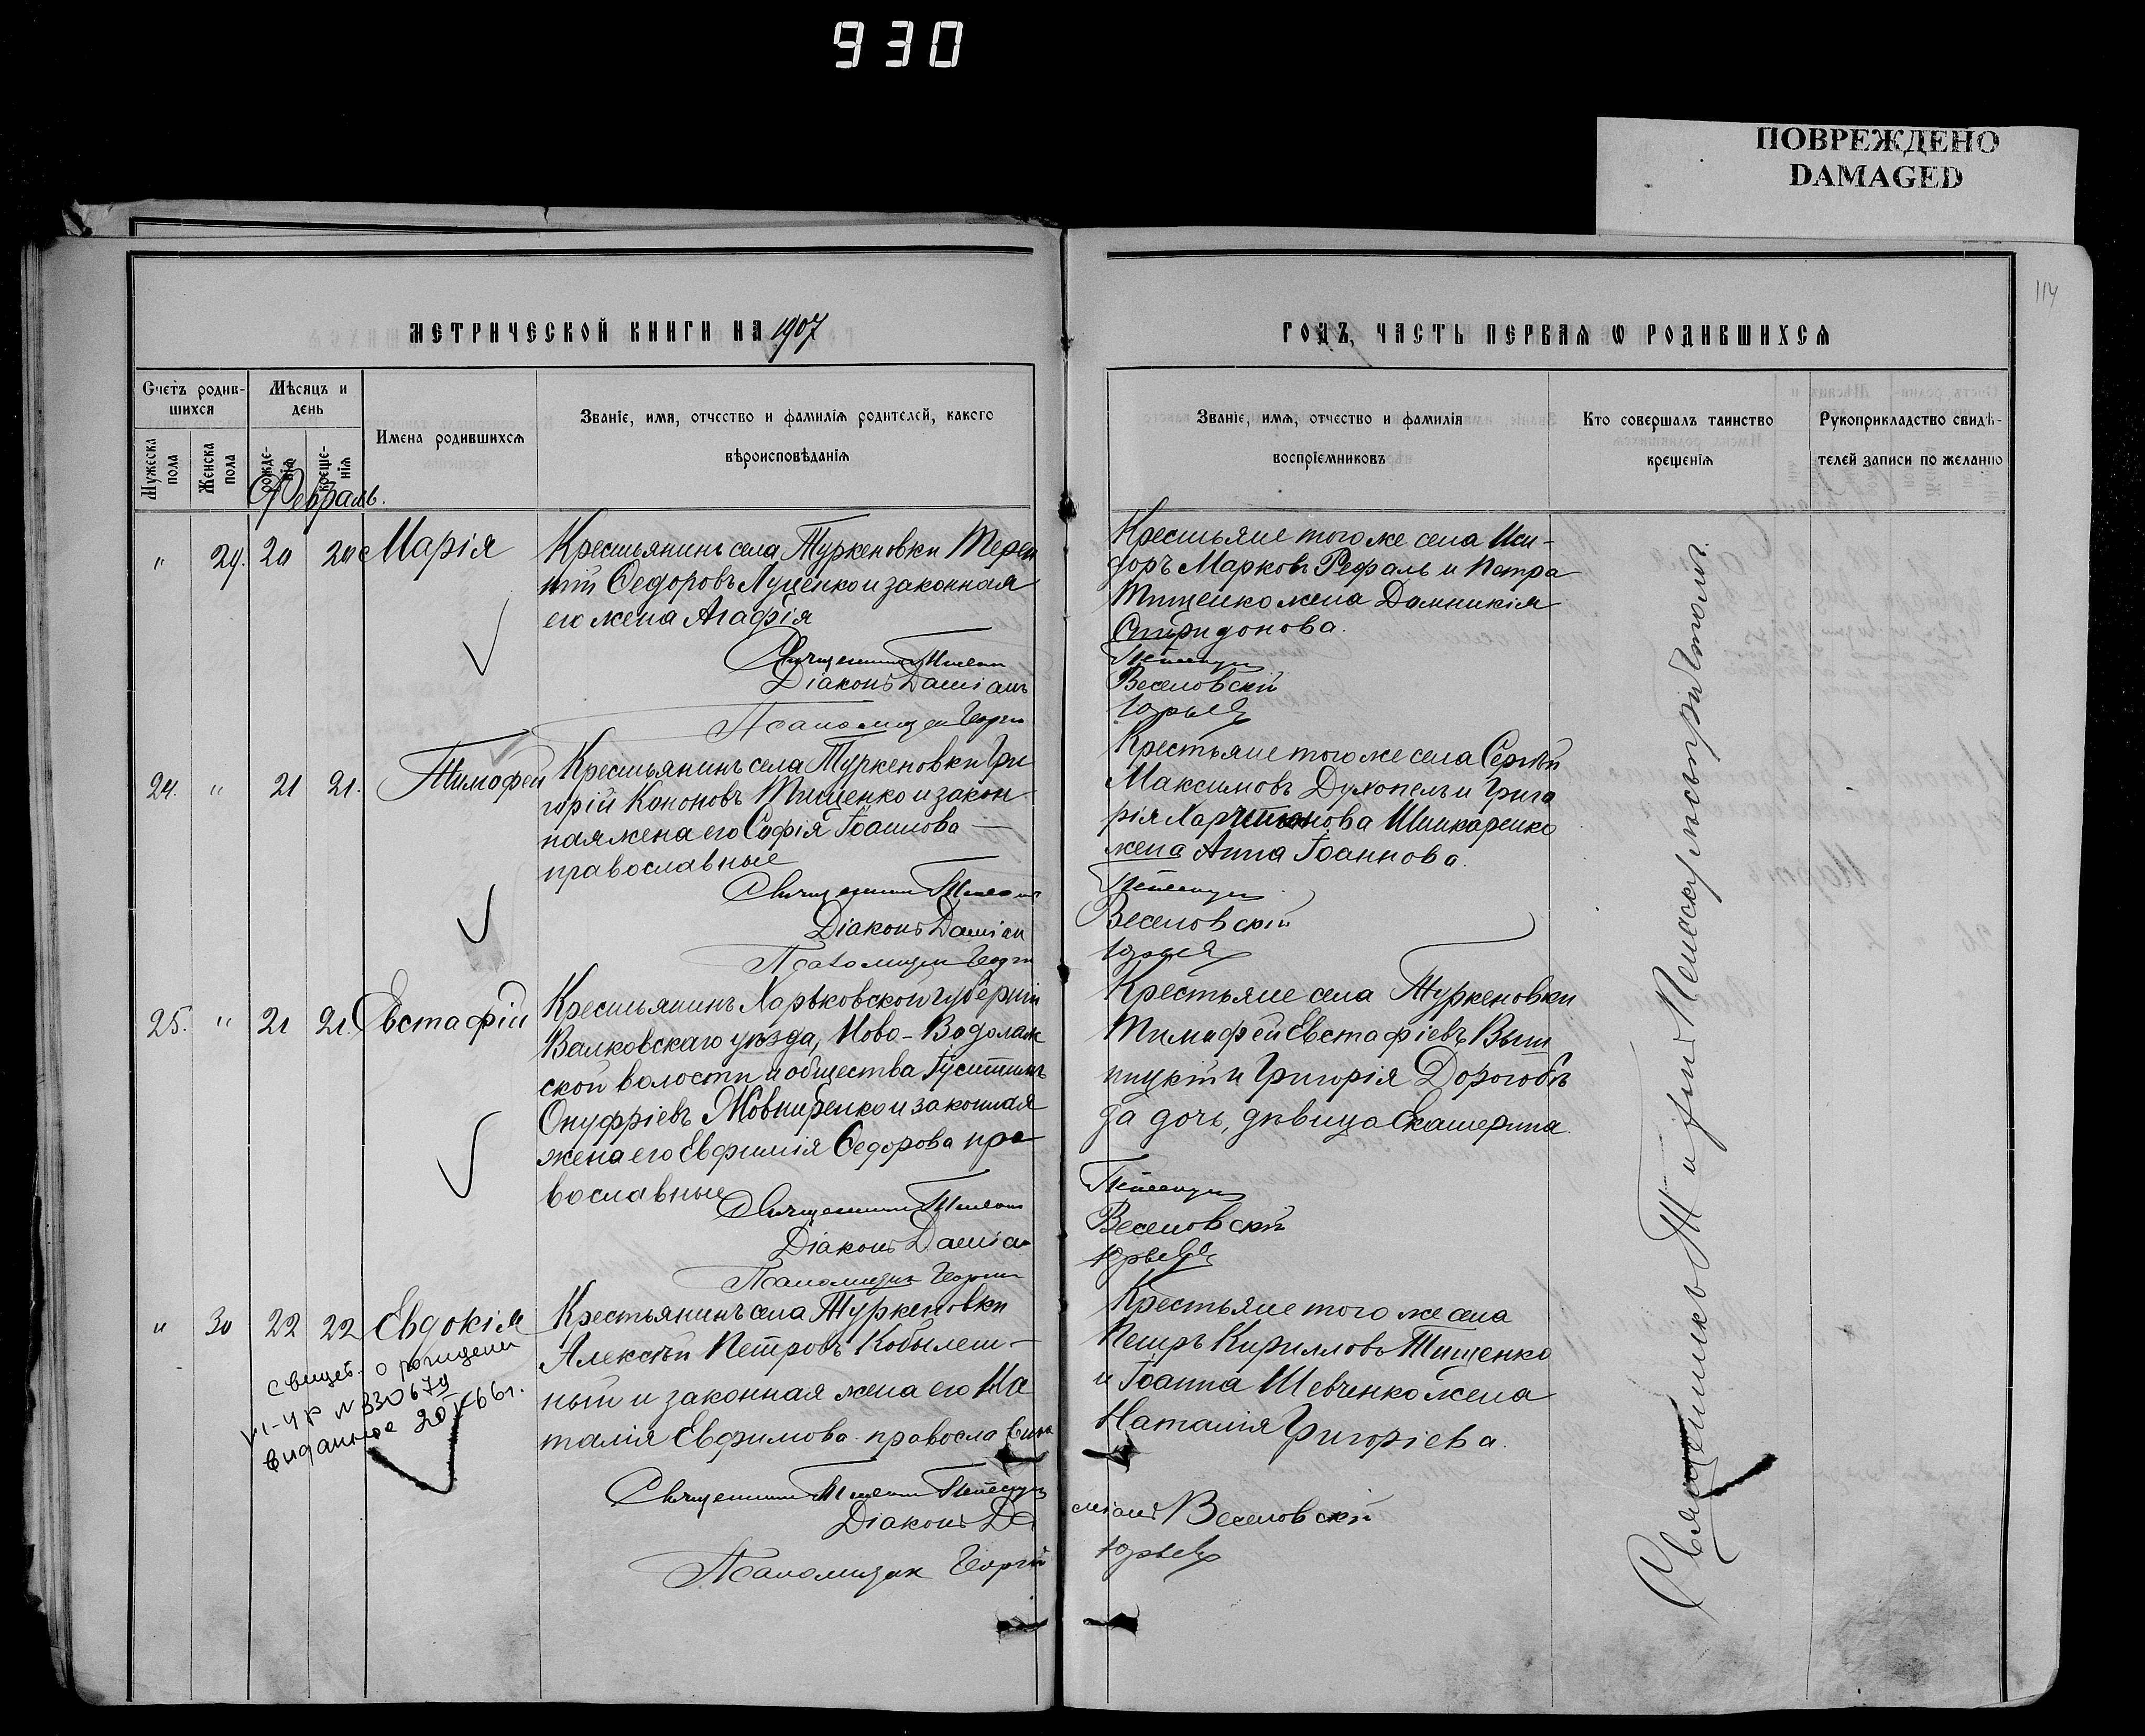 930
ПОВРЕЖДЕНО
DAMAGED
114
МЕТРИЧЕСКОЙ КНИГИ НА 1907
ГОДЪ, ЧАСТЬ ПЕРВАЯ Ѡ РОДИВШИХСЯ
Счетъ родив-
шихся
Мужеска пола
Женска пола
Мѣсяцъ и
день
рожде-
нія
креще-
нія
Имена родившихся
Званіе, имя, отчество и фамилія родителей, какого
вѣроисповѣданія
Званіе, имя, отчество и фамилія
воспріемниковъ
Кто совершалъ таинство
крещенія
Рукоприкладство свидѣ-
телей записи по желанію
Февраль.
" 29. 20 20 Марія
Крестьянинъ села Туркеновки Терен
тій Ѳедоровъ Луценко и законная
его жена Агафія
Священникъ
Діаконъ Даміанъ
Псаломщикъ Георгій
Крестьяне того же села Иси-
доръ Марковъ и Петра
Тищенко жена Домникія
Спиридонова.
Веселовскій
Юрьевъ
24. " 21 21. Тимофей
Крестьянинъ села Туркеновки Гри
горій Кононовъ Тищенко и закон-
ная жена его Софія Іоаннова —
православные
Священникъ
Діаконъ Даміан
Псаломщикъ Георгій
Крестьяне того же села Сергѣй
Максимовъ и Григо
рія Харитонова Шинкаренко
жена Анна Іоаннова.
Веселовскій
Юрьевъ
25. " 21 21. Евстафій
Крестьянинъ Харьковской губерніи
Валковскаго уѣзда, Ново-Водолаж
ской волости и общества Іустинъ
Онуфріевъ Жовниренко и законная
жена его Евфимія Ѳедорова пра
вославные
Священникъ
Діаконъ Даміан
Псаломщикъ Георгій
Крестьяне села Туркеновки
Тимофей Евстафіевъ
и Григорія Дорогобѣ
да дочь, дѣвица Екатерина.
Веселовскій
Юрьевъ
" 30 22 22 Евдокія
свидет. о рождении
N 330679
66 г.
Крестьянинъ села Туркеновки
Алексѣй Петровъ
и законная жена его На
талія Евфимова православные
Священникъ
Діаконъ Да
Псаломщик Георгій
Крестьяне того же села
Петръ Кирилловъ Тищенко
и Іоанна Шевченко жена
Наталія Григоріева.
міанъ Веселовскій
Юрьевъ
Священникъ съ псаломщикомъ